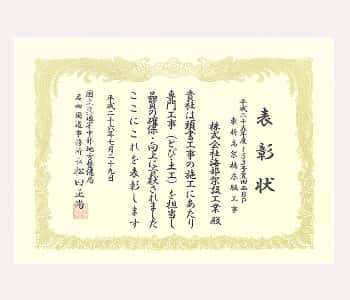 表彰状
平成二十五年度1号
東新高架橋床版工事
株式会社海部架設工業 殿
貴社は頭書工事の施工にあたり
専門工事（とび・土工）を担当し
品質の確保・向上に貢献されました
ここにこれを表彰します
平成二十六年七月二十九日
国土交通省中部地方整備局
名四国道事務所長 松田正尚